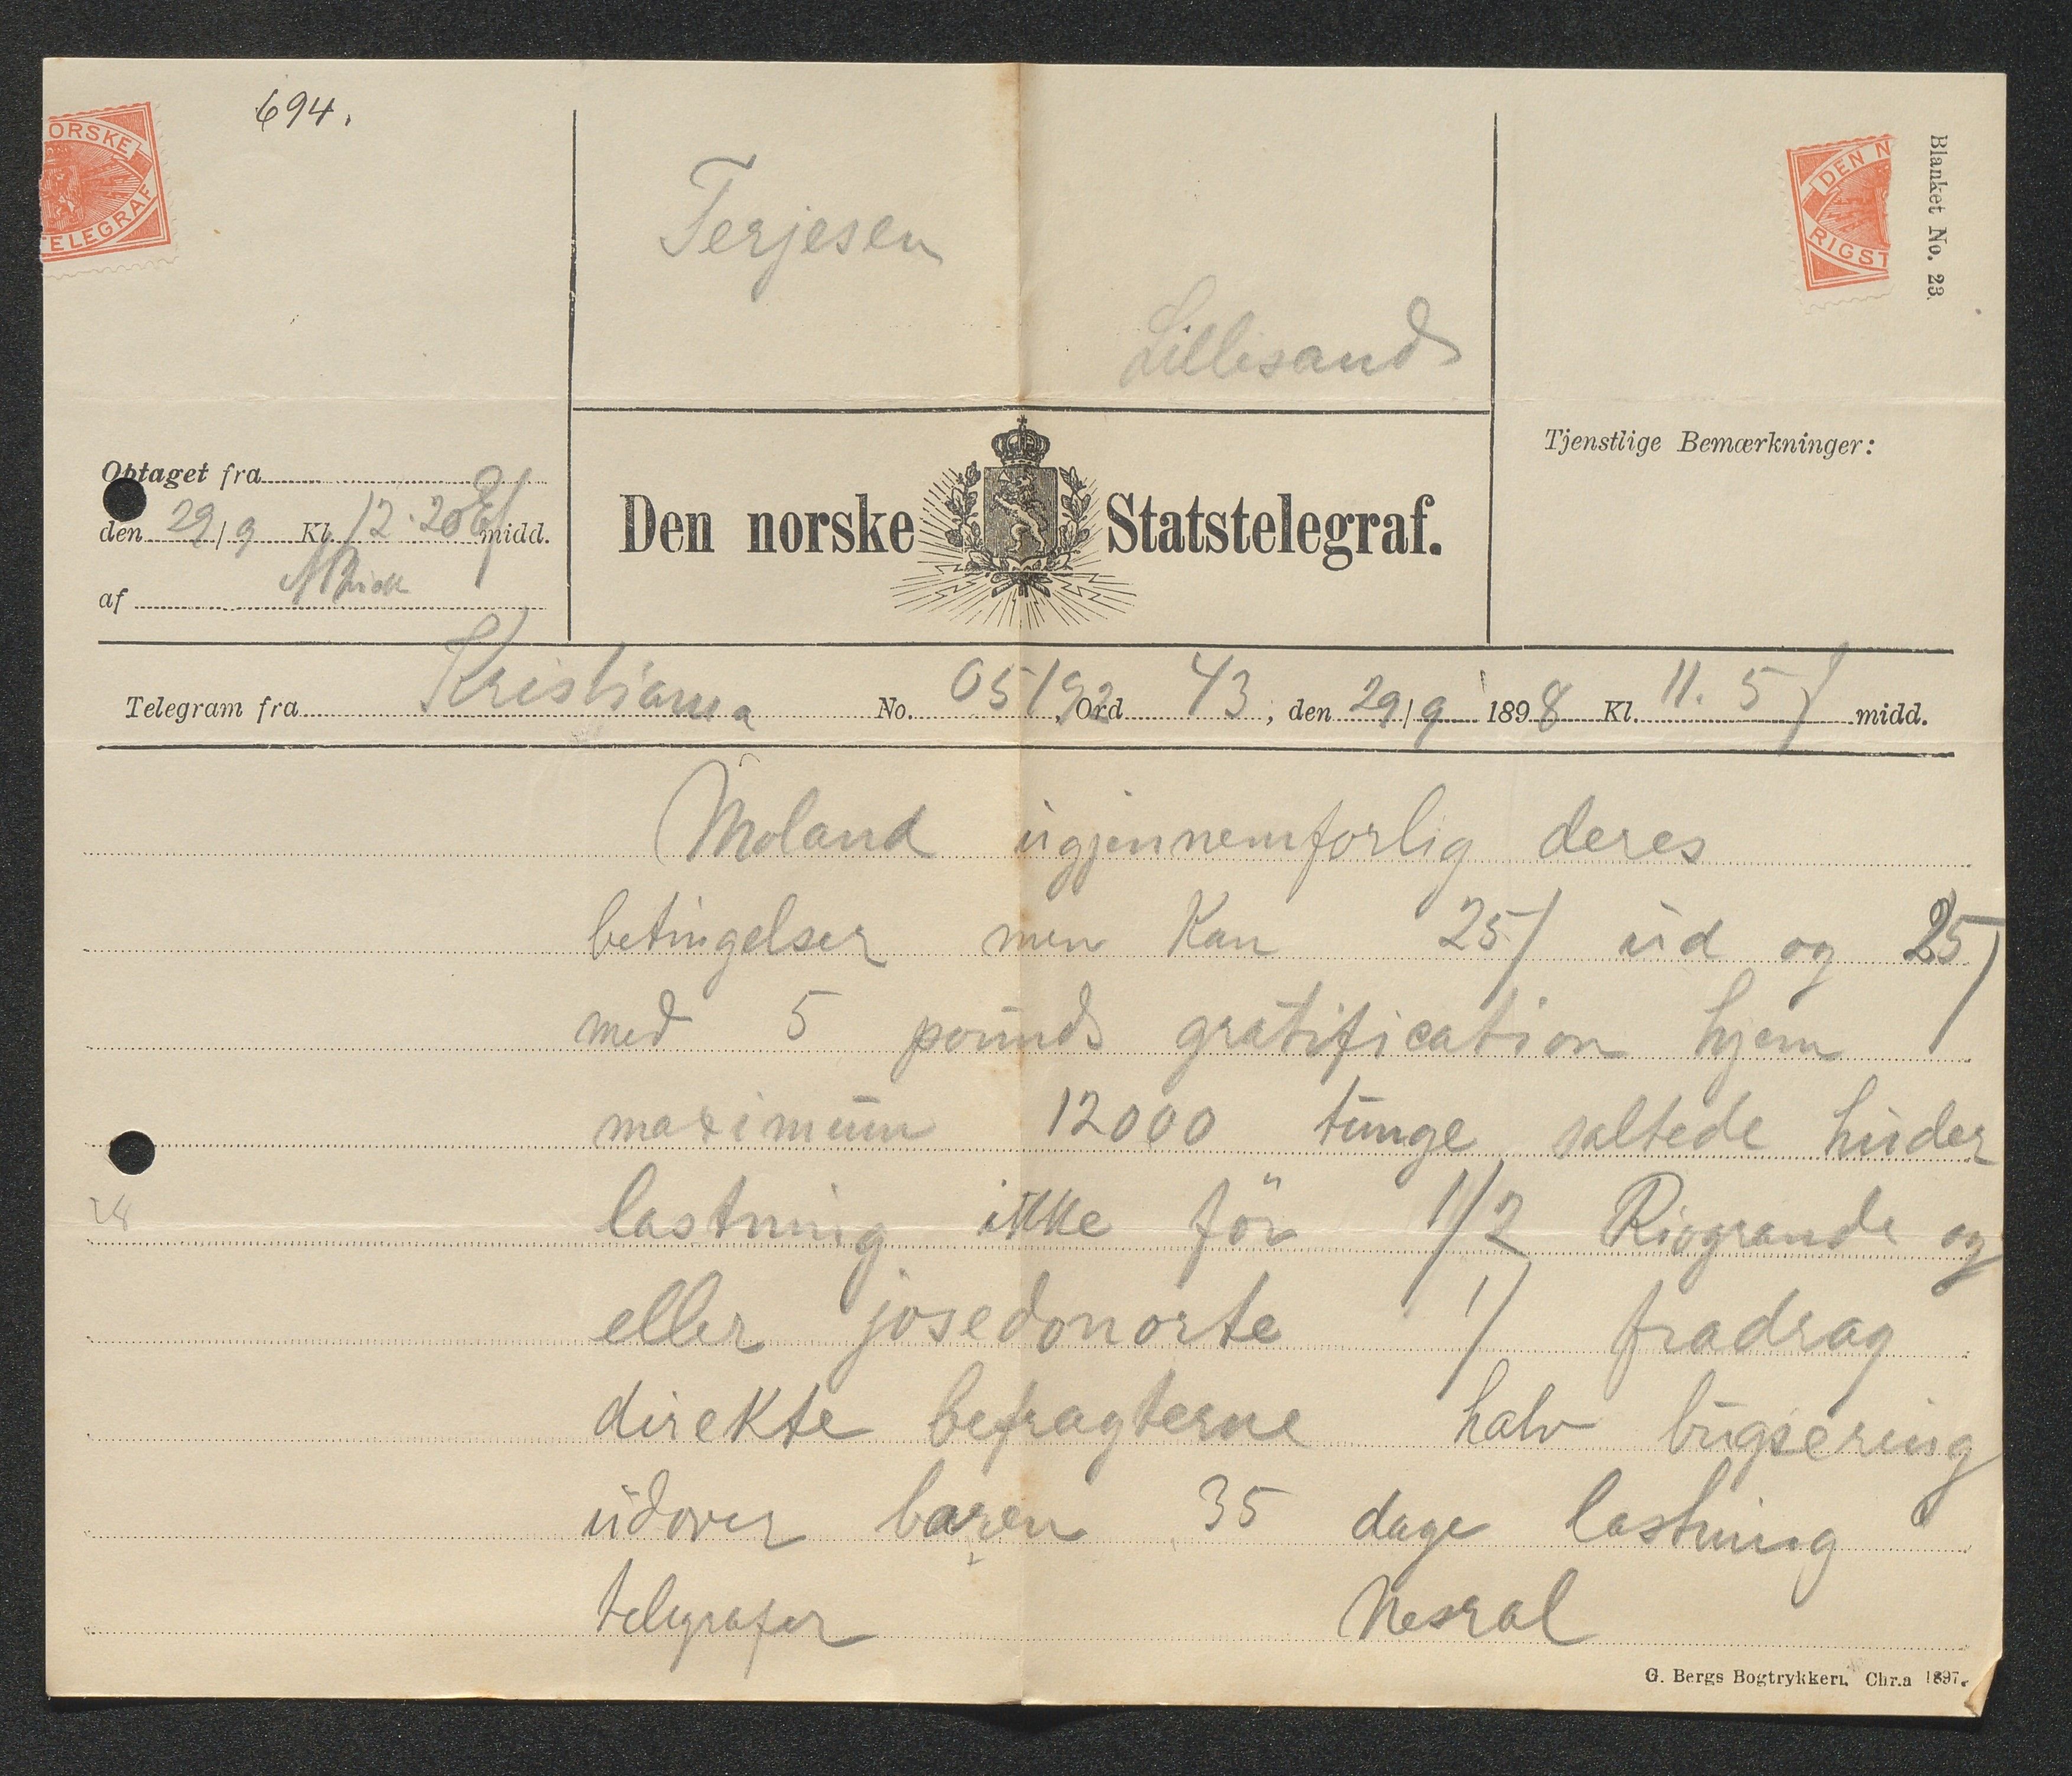 694.
ORSKE
TELEGRAF
DEN N
RIGST
Blanket No. 23.
Terjesen
Lillesand
Optaget fra
den 29/9 Kl. 12.20 Ef midd.
af
Den norske Statstelegraf.
Tjenstlige Bemærkninger:
Telegram fra Kristiania No. 05192 Ord 43, den 29/9 1898 Kl. 11.5 f midd.
Moland ugjennemforlig deres
betingelser men kan 25/ ud og 25/
med 5 pounds gratification hjem
maximum 12000 tunge saltede huder
lastning ikke før 1/2 Riogrande og
eller josedonorte 1/ fradrag
direkte befragterne halv bugsering
udover baren 35 dage lastning
telegrafer Nesral
G. Bergs Bogtrykkeri, Chr.a 1897.